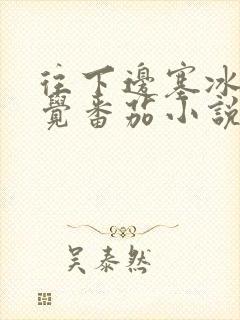 往下邊塞冰
覺番茄小說
吴泰然